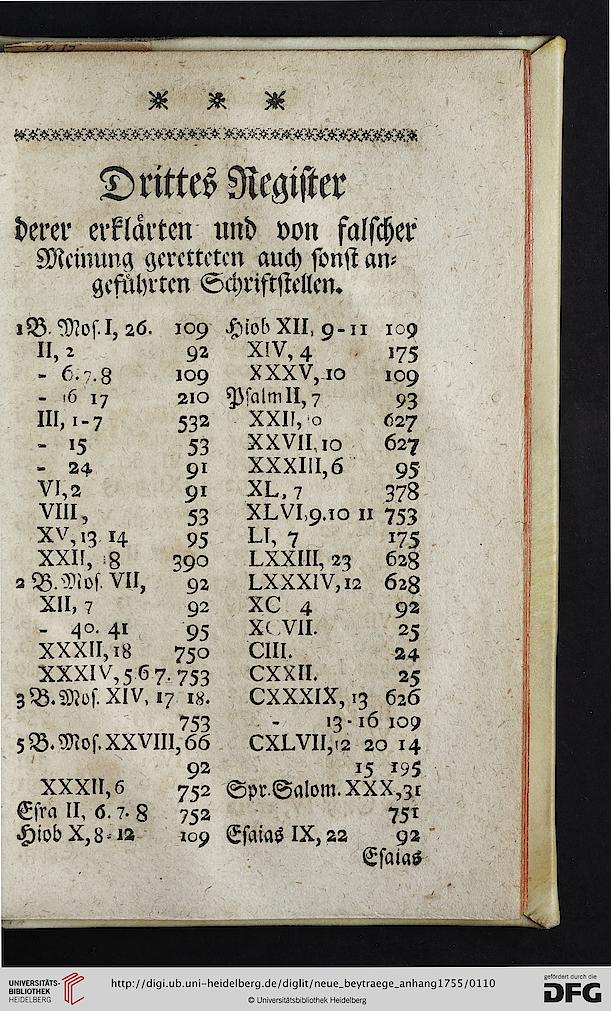 Drittes Register
derer erklärten und von falscher
Meinung geretteten auch sonst an-
geführten Schriftstellen.
1 B. Mos. I, 26. 109
II, 2 92
- 6.7.8 109
- 16 17 210
III, 1-7 532
- 15 53
- 24 91
VI, 2 91
VIII, 53
XV, 13 14 95
XXII, 18 390
2 B. Mos. VII, 92
XII, 7 92
- 40. 41 95
XXXII, 18 750
XXXIV, 5 6 7. 753
3 B. Mos. XIV, 17 18.
753
5 B. Mos. XXVIII, 66
92
XXXII, 6 752
Esra II, 6. 7. 8 752
Hiob X, 8-12 109
Hiob XII, 9-11 109
XIV, 4 175
XXXV, 10 109
Psalm II, 7 93
XXII, 627
XXVII, 10 627
XXXIII, 6 95
XL, 7 378
XLVI, 9.10 11 753
LI, 7 175
LXXIII, 23 628
LXXXIV, 12 628
XC 4 92
XCVII. 25
CIII. 24
CXXII. 25
CXXXIX, 13 626
- 13-16 109
CXLVII, 12 20 14
15 195
Spr. Salom. XXX, 31
751
Esaias IX, 22 92
Esaias
UNIVERSITÄTS-
BIBLIOTHEK
HEIDELBERG
http://digi.ub.uni-heidelberg.de/diglit/neue_beytraege_anhang1755/0110
© Universitätsbibliothek Heidelberg
gefördert durch die
DFG